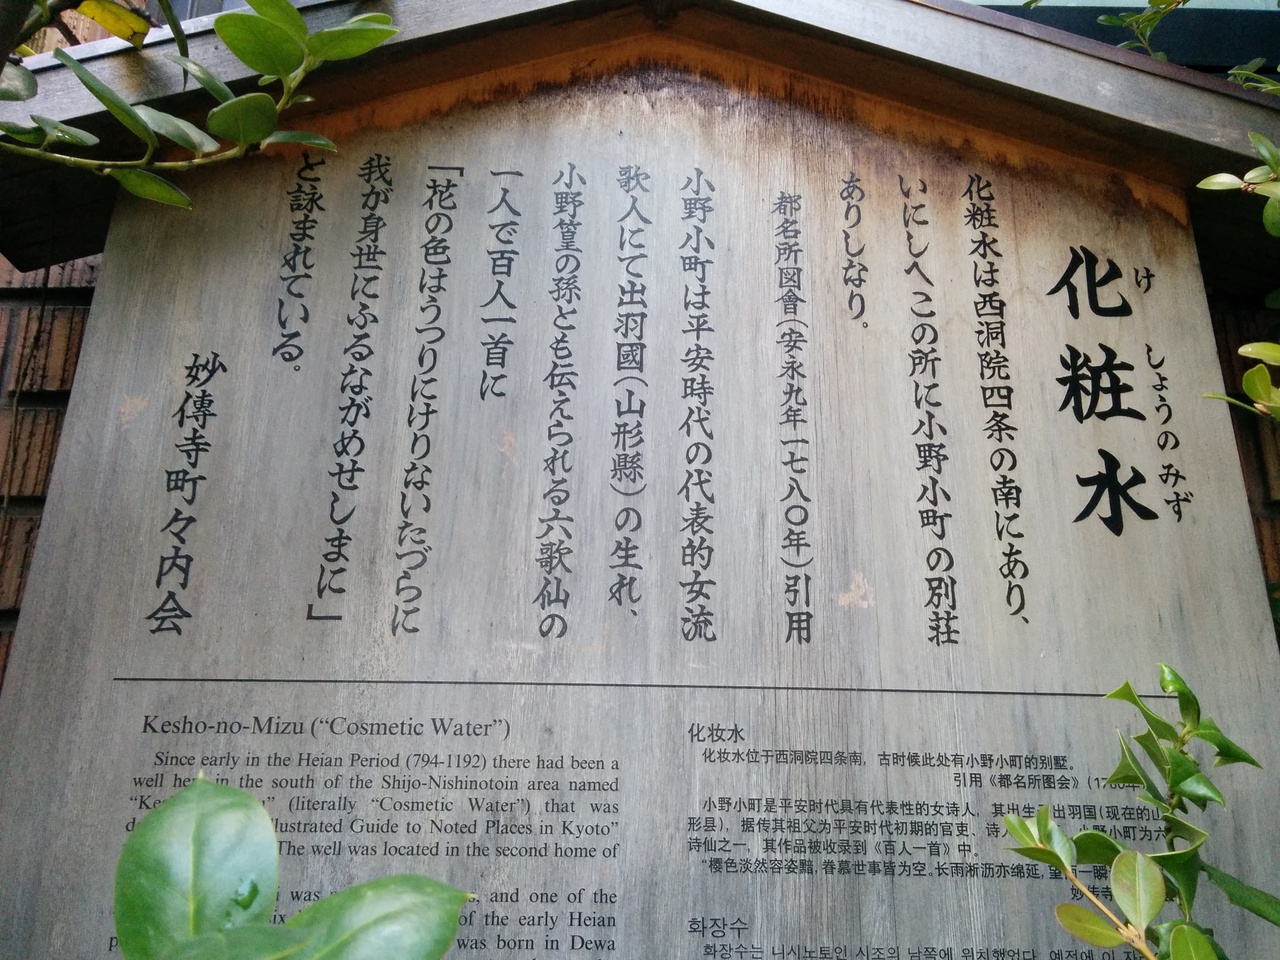 化粧水
けしょうのみず
化粧水は西洞院四条の南にあり、
いにしへこの所に小野小町の別荘
ありしなり。
都名所図會(安永九年一七八〇年)引用
小野小町は平安時代の代表的女流
歌人にて出羽國(山形縣)の生れ、
小野篁の孫とも伝えられる六歌仙の
一人で百人一首に
「花の色はうつりにけりないたづらに
我が身世にふるながめせしまに」
と詠まれている。
妙傳寺町々内会
Kesho-no-Mizu (“Cosmetic Water”)
Since early in the Heian Period (794-1192) there had been a
well here in the south of the Shijo-Nishinotoin area named
(literally “Cosmetic Water”) that was
Illustrated Guide to Noted Places in Kyoto”
The well was located in the second home of
was, and one of the
of the early Heian
was born in Dewa
化妆水
化妆水位于西洞院四条南，古时候此处有小野小町的别墅。
引用《都名所图会》
小野小町是平安时代具有代表性的女诗人，其出生于出羽国(现在的山
形县)，据传其祖父为平安时代初期的官吏、诗人 小野小町为六
诗仙之一，其作品被收录到《百人一首》中。
“樱色淡然容姿黯，眷慕世事皆为空。长雨淅沥亦绵延，
화장수
화장수는 니시노토인 시조의 남쪽에 위치했었다. 예전에 이